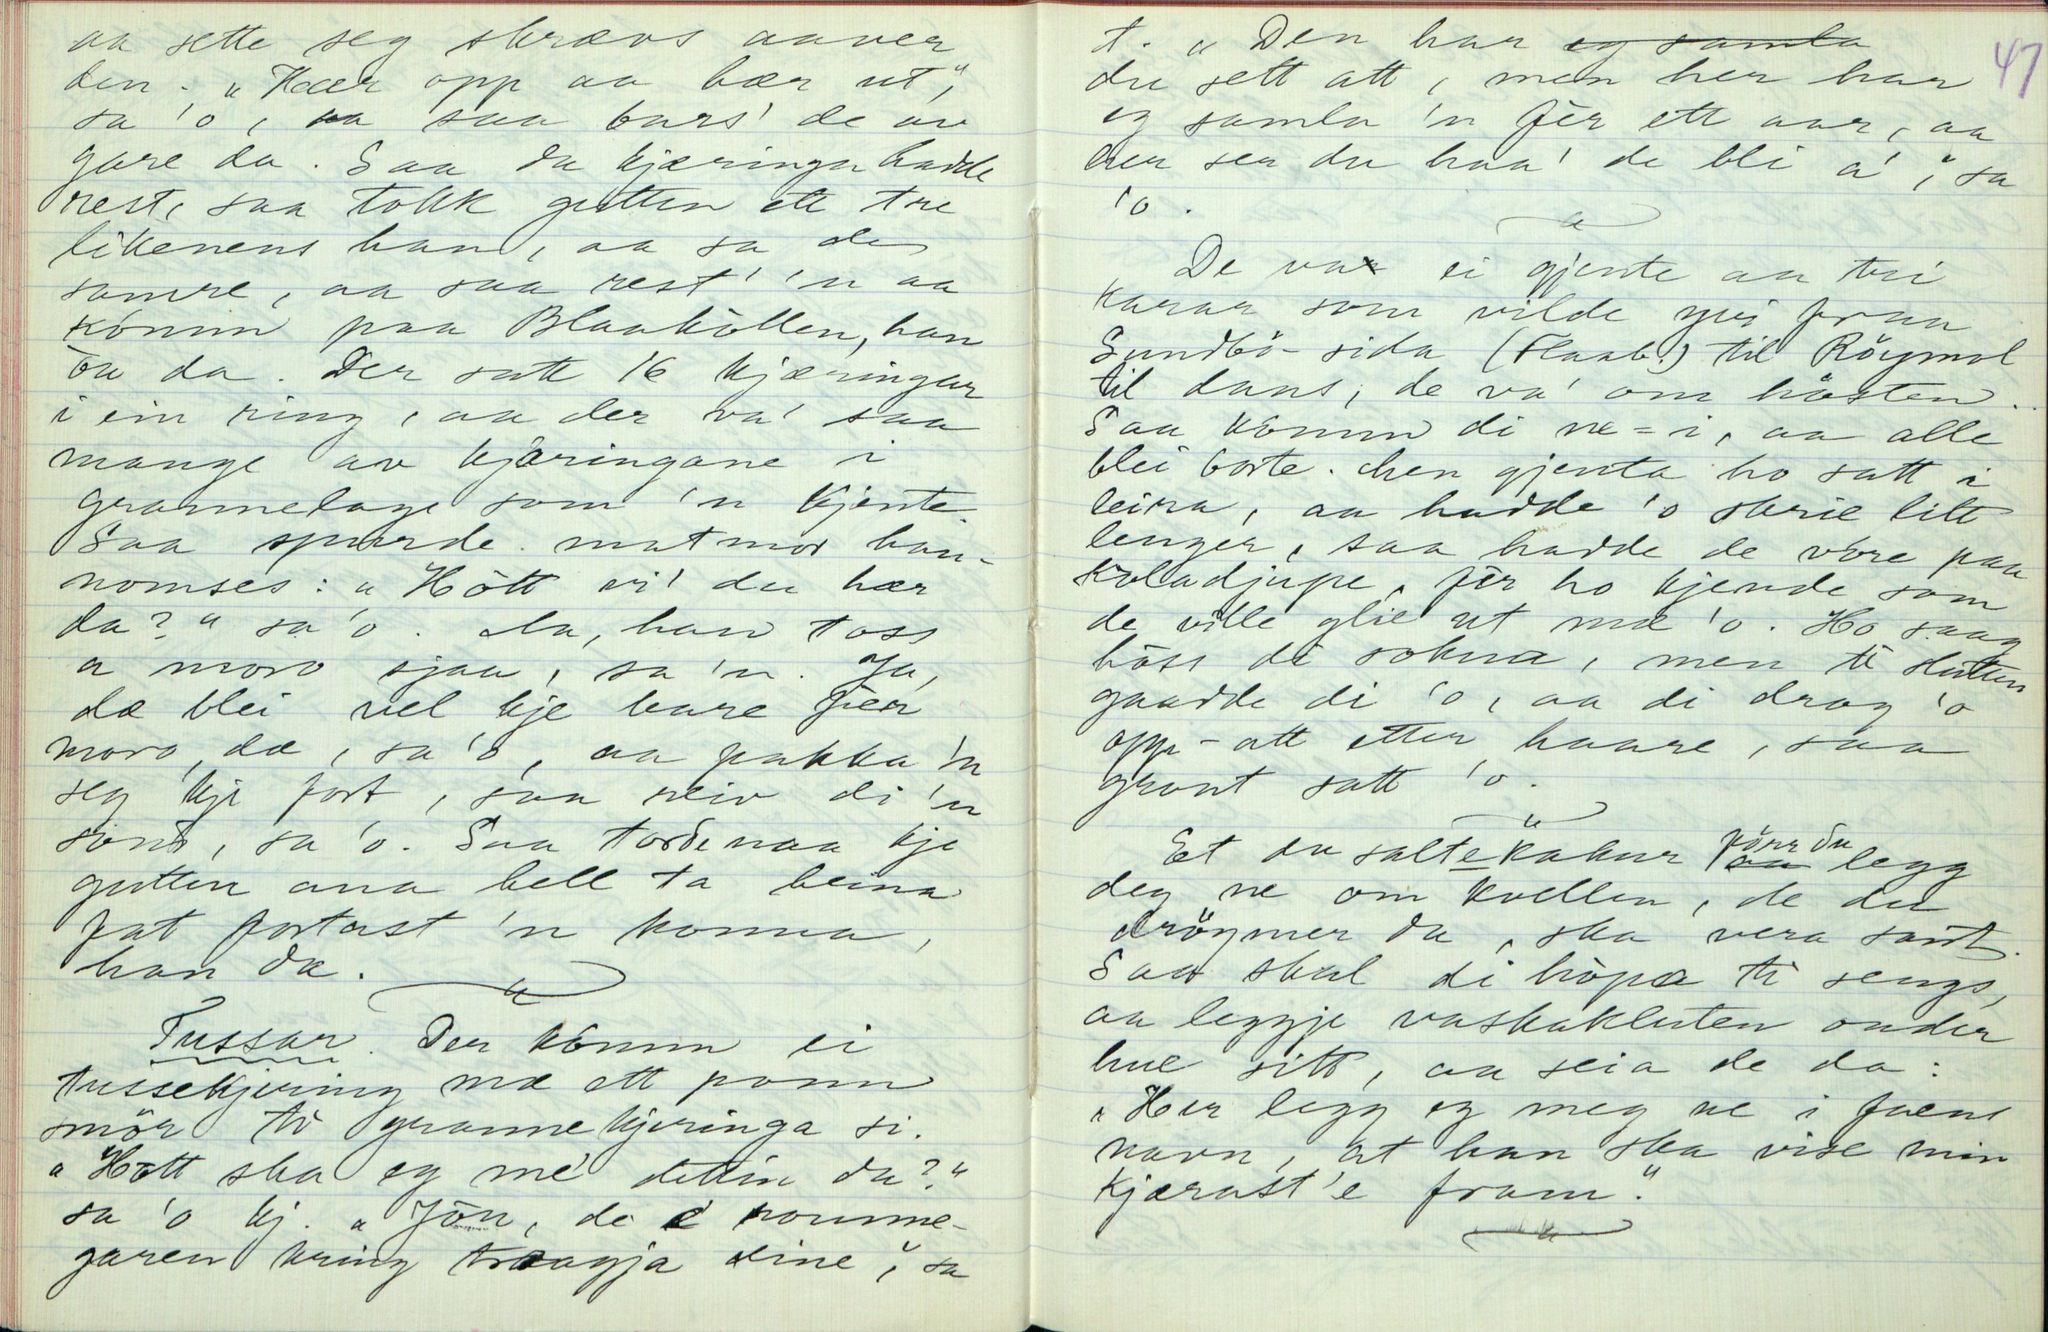 aa sette seg skrævs aaver
den. „Hær opp aa bær ut“,
sa 'o, aa saa bars' de av
gare da. Saa da kjæringa hadde
rest, saa tokk gutten ett tre
likenens han, aa sa de
samre, aa saa rest' 'n aa
kömm paa Blaaköllen, han
da. Der satt 16 kjæringar
i ein ring, aa der va' saa
mange av kjæringane i
grannelage som 'n kjente.
Saa spurde matmor han-
nomses: „Hött vi' du hær
da?“ sa 'o. Aa, han toss
a moro sjaa, sa 'n. Ja,
dæ blei vel kje bare fer
moro, dæ, sa 'o, aa pakka 'n
seg kje fort, saa reiv di 'n
sond, sa 'o. Saa tordenaa kje
gutten ana hell ta beina
fat fortast 'n konna,
han da.
Tussar. Der kömm ei
tussekjering mæ ett ponn
smör te grannekjeringa si.
„Hött ska eg me' dettin da?“
sa 'o kj. „Jön, de e' romme-
garen kring traagja dine“, sa
47
t. „Den har eg samla
du sett att, men her har
eg samla 'n fer ett aar, aa
her ser du haa' de bli a'“, sa
'o.
De var ei gjente aa tri
karar som vilde yvi fraa
Sundbö-sida (Flaab.) til Röymol
til dans, de va' om hösten.
Saa kömm di ne-i, aa alle
blei borte. Men gjenta ho satt i
leira, aa hadde 'o skrie litt
lenger, saa hadde de vore paa
svladjupe, fer ho kjende som
de ville glie ut mæ 'o. Ho saag
höss di sokna, men te slutten
gaadde di 'o, aa di drog 'o
opp-att etter haare, saa
gront satt 'o.
Et du saltekakur förr du
aa legg
deg ne om kvellen, de du
dröymer da, ska vera sant.
Saa skal di höpa te sengs,
aa leggje vaskakluten onder
hue sitt, aa seia de da:
„Her legg eg meg ne i faens
navn, at han ska vise min
kjærast'e fram“.